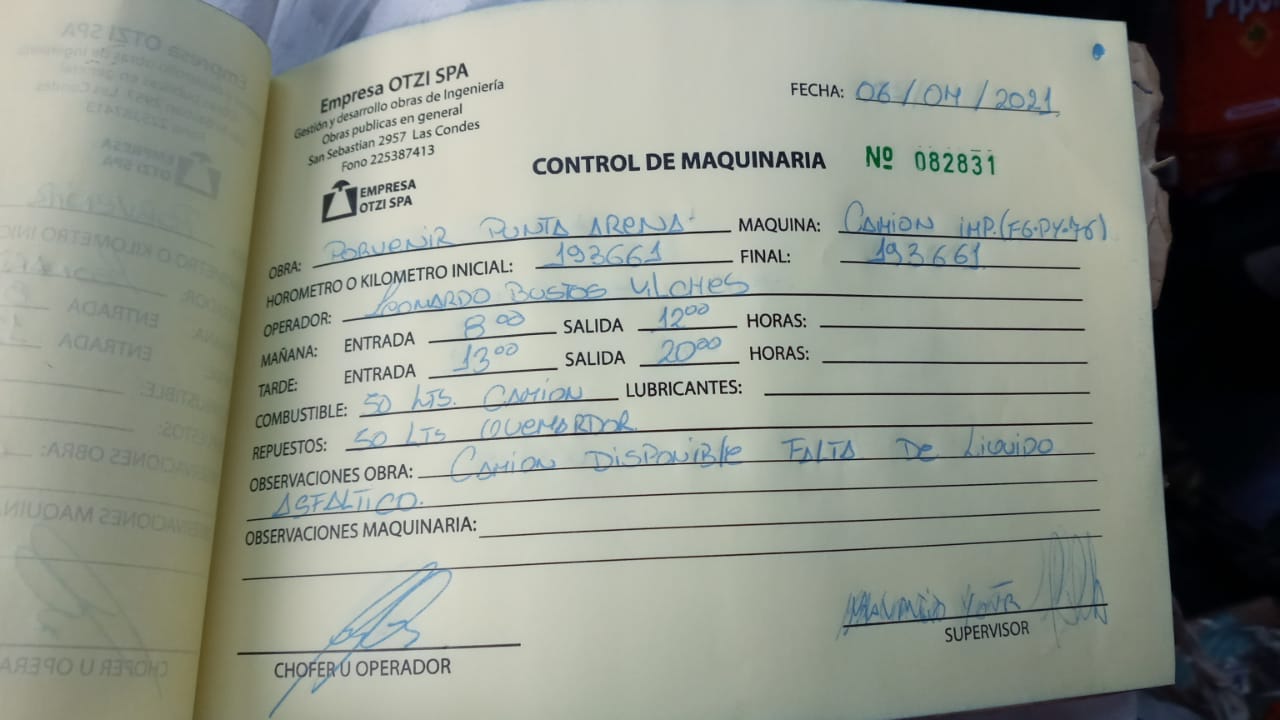 Empresa OTZI SPA
Gestión y desarrollo obras de Ingeniería
Obras publicas en general
San Sebastian 2957 Las Condes
Fono 225387413
EMPRESA
OTZI SPA
FECHA: 06/04/2021
CONTROL DE MAQUINARIA Nº 082831
OBRA: PORVENIR PUNTA ARENA MAQUINA: CAMION IMP.(FG-PY-76)
HOROMETRO O KILOMETRO INICIAL: 193661 FINAL: 193661
OPERADOR: LEONARDO BUSTOS VILCHES
MAÑANA: ENTRADA 8:00 SALIDA 12:00 HORAS:
TARDE: ENTRADA 13:00 SALIDA 20:00 HORAS:
COMBUSTIBLE: 50 LTS. CAMION LUBRICANTES:
REPUESTOS: 50 LTS QUEMADOR
OBSERVACIONES OBRA: CAMION DISPONIBLE FALTA DE LIQUIDO
ASFALTICO.
OBSERVACIONES MAQUINARIA:
CHOFER U OPERADOR
SUPERVISOR